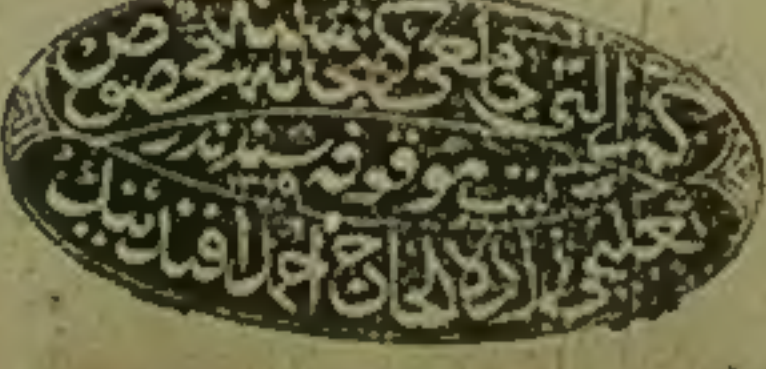 التی جامعی كتبخانه سنه مخصوص
كتب موقوفه سندندر
زاده الحاج احمد افندينك